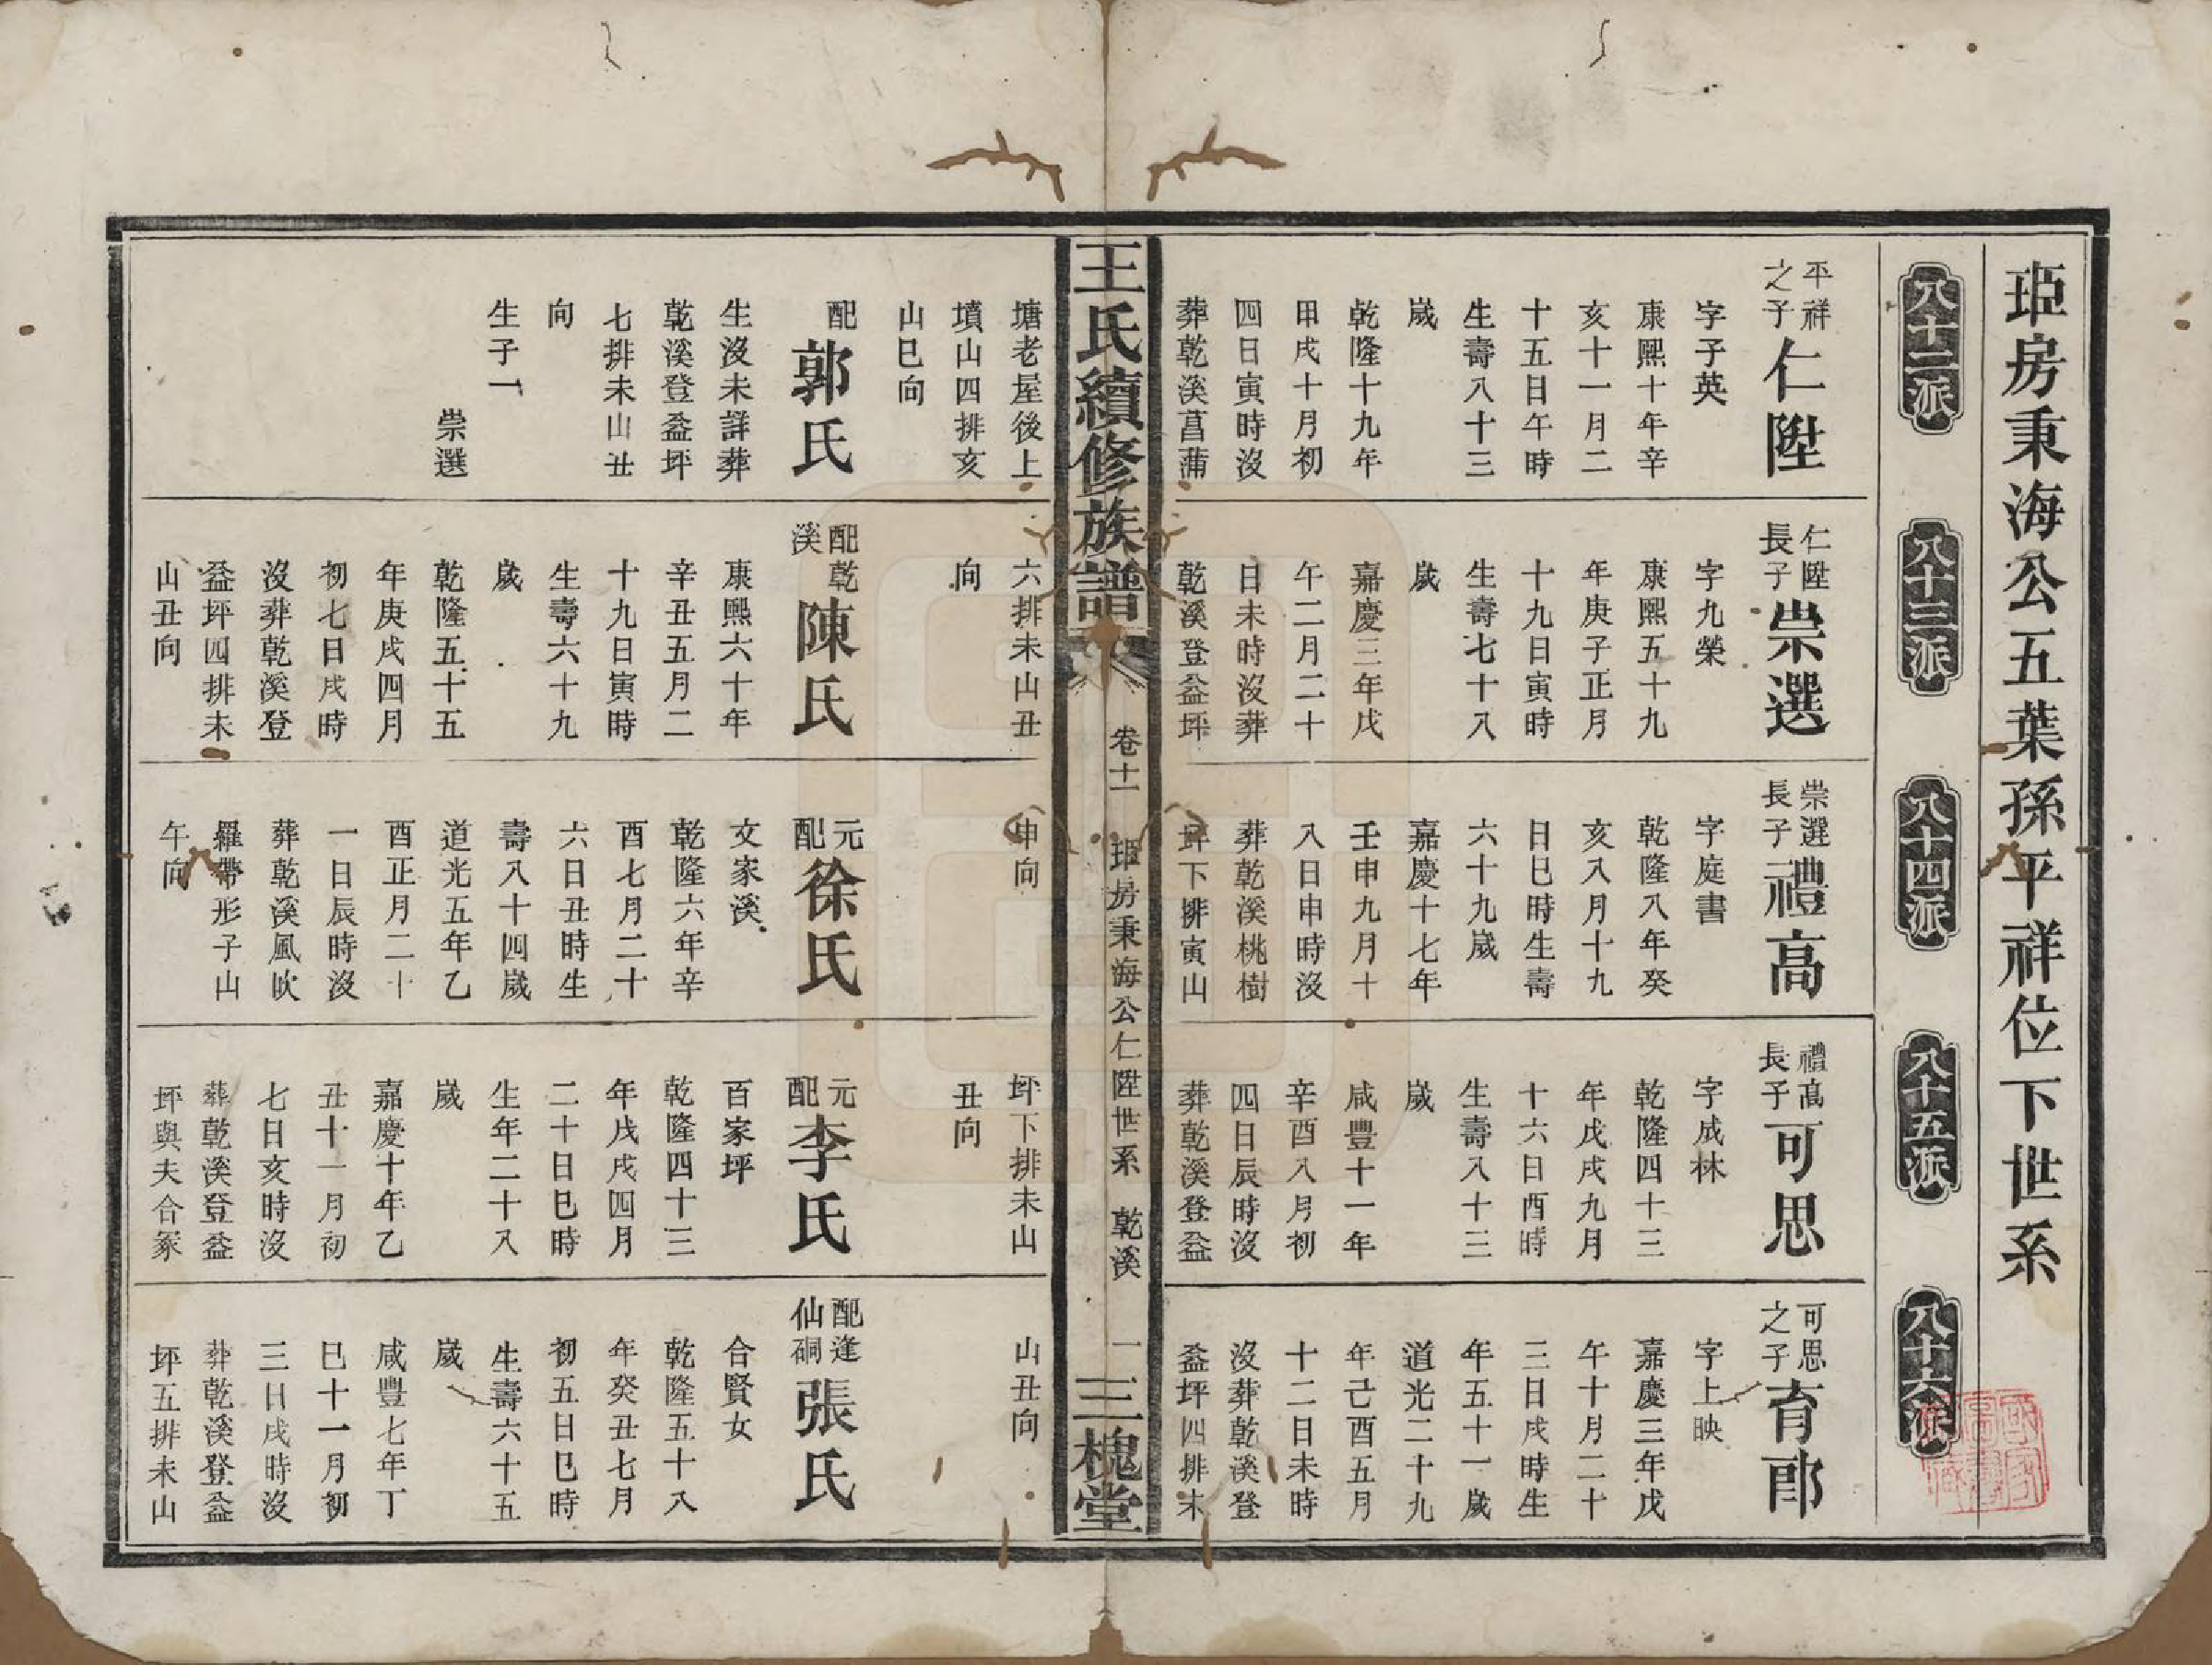 房秉海公五葉孫平祥位下世系
八十二派
八十三派
八十四派
八十五派
八十六派
平祥之子仁陞
字子英
康熙十年辛
亥十一月二
十五日午時
生壽八十三
歲
乾隆十九年
甲戌十月初
四日寅時沒
葬乾溪菖蒲
塘老屋後上
墳山四排亥
山巳向
配郭氏
生沒未詳葬
乾溪登益坪
七排未山丑
向
生子一
崇選
仁陞長子崇選
字九榮
康熙五十九
年庚子正月
十九日寅時
生壽七十八
歲
嘉慶三年戊
午二月二十
日未時沒葬
乾溪登益坪
六排未山丑
向
配乾溪陳氏
康熙六十年
辛丑五月二
十九日寅時
生壽六十九
歲
乾隆五十五
年庚戌四月
初七日戌時
沒葬乾溪登
益坪四排未
山丑向
崇選長子禮高
字庭書
乾隆八年癸
亥八月十九
日巳時生壽
六十九歲
嘉慶十七年
壬申九月十
八日申時沒
葬乾溪桃樹
坪下排寅山
申向
元配徐氏
文家溪
乾隆六年辛
酉七月二十
六日丑時生
壽八十四歲
道光五年乙
酉正月二十
一日辰時沒
葬乾溪風吹
羅帶形子山
午向
禮高長子可思
字成林
乾隆四十三
年戊戌九月
十六日酉時
生壽八十三
歲
咸豐十一年
辛酉八月初
四日辰時沒
葬乾溪登益
坪下排未山
丑向
元配李氏
百家坪
乾隆四十三
年戊戌四月
二十日巳時
生年二十八
歲
嘉慶十年乙
丑十一月初
七日亥時沒
葬乾溪登益
坪與夫合冢
可思之子育郎
字上映
嘉慶三年戊
午十月二十
三日戌時生
年五十一歲
道光二十九
年己酉五月
十二日未時
沒葬乾溪登
益坪四排未
山丑向
配逢仙硐張氏
合賢女
乾隆五十八
年癸丑七月
初五日巳時
生壽六十五
歲
咸豐七年丁
巳十一月初
三日戌時沒
葬乾溪登益
坪五排未山
王氏續修族譜
卷十一
房秉海公仁陞世系
乾溪
一
三槐堂